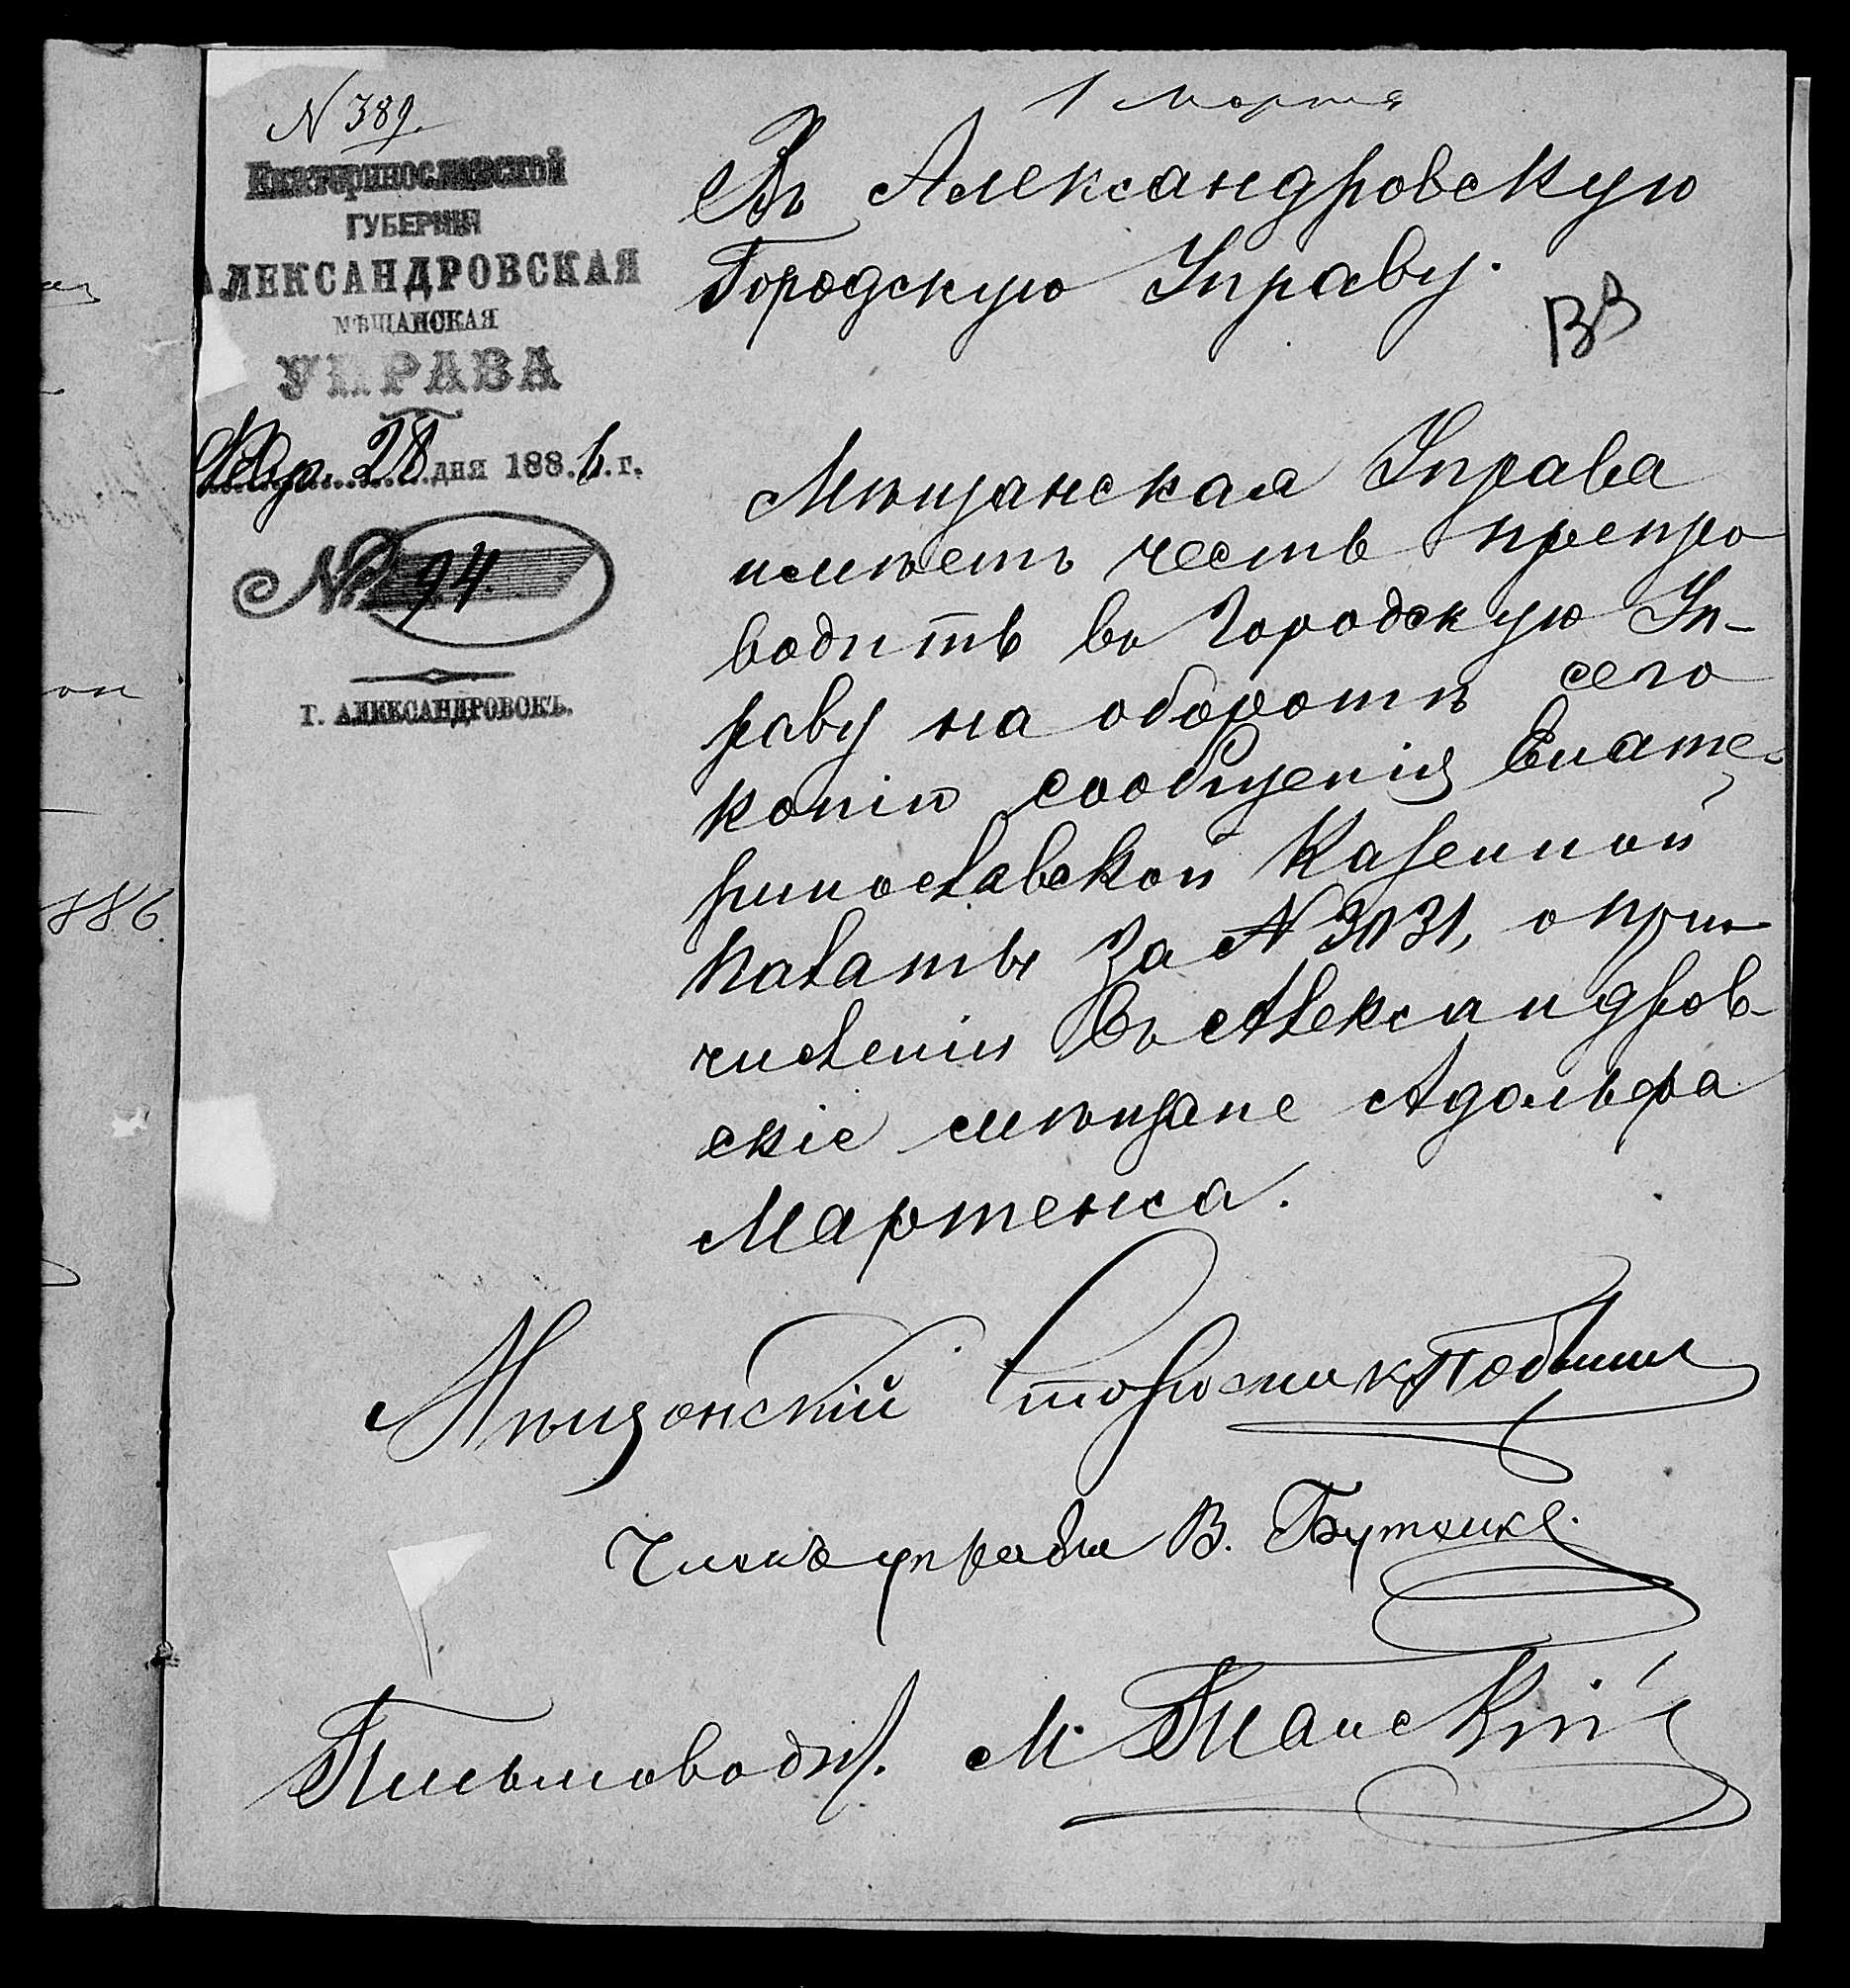 N 389.
1 Марта
Екатеринославской
ГУБЕРНІИ
АЛЕКСАНДРОВСКАЯ
МѢЩАНСКАЯ
УПРАВА
Февр. 28 дня 1886.г.
№ 94.
Г. АЛЕКСАНДРОВСКЪ.
Въ Александровскую
Городскую Управу.
ВВ
Мѣщанская Управа
имѣетъ честь препро
водить въ Городскую Уп-
раву на оборотѣ сего
копію сообщенія Екате-
ринославской Казенной
Палаты за N 3131, о при-
численіи въ Александров-
скіе мѣщане Адольфа
Мартенса.
Мѣщанскій Староста
Членъ управы В.
Письмовод. М.
886.